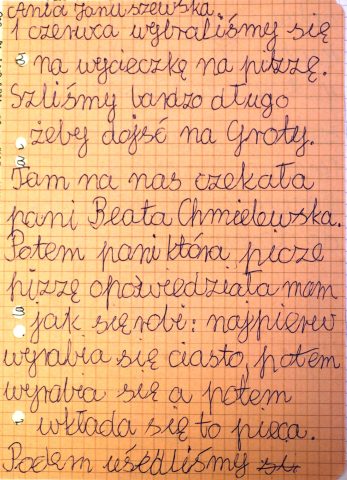 Ania Januszewska.
1 czerwca wybraliśmy się
na wycieczkę na pizzę.
Szliśmy bardzo długo
żeby dojść na Groty.
Tam na nas czekała
pani Beata Chmielewska.
Potem pani która picze
pizzę opowiedziała mam
jak się robi: najpierw
wyrabia się ciasto, potem
wyrabia się a potem
wkłada się to pieca.
Podem usedliśmy